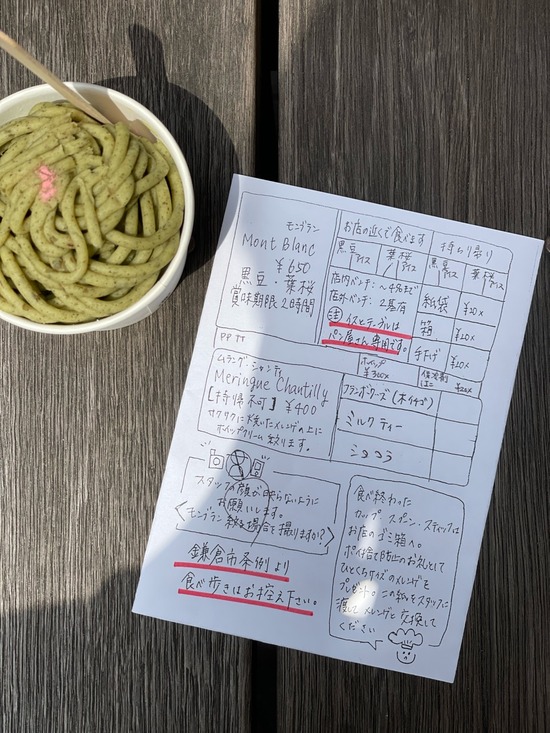 モンブラン
Mont Blanc
¥650
黒豆・葉桜
賞味期限2時間
お店の近くで食べます
持ち帰り
黒豆アイス
葉桜アイス
黒豆アイス
葉桜アイス
店内ベンチ：～4名まで
店外ベンチ：2基有
注 イスとテーブルは
パン屋さん専用です。
紙袋
¥20×
箱
¥20×
手下げ
¥20×
ホイップ
¥300×
保冷剤
¥20×
PP TT
ムラング・シャンティ
Meringue Chantilly
[持帰不可] ¥400
サクサクに焼いたメレンゲの上に
ホイップクリーム絞ります。
フランボワーズ
ミルクティー
ショコラ
スタッフの顔が映らないように
お願いします。
モンブラン絞る場合を撮りますか？
鎌倉市条例より
食べ歩きはお控え下さい。
食べ終わった
カップ スプーン・スティックは
お店のゴミ箱へ。
ポイ捨て防止のお礼として
ひとくちサイズのメレンゲを
プレゼント。この紙をスタッフに
渡してメレンゲと交換して
ください